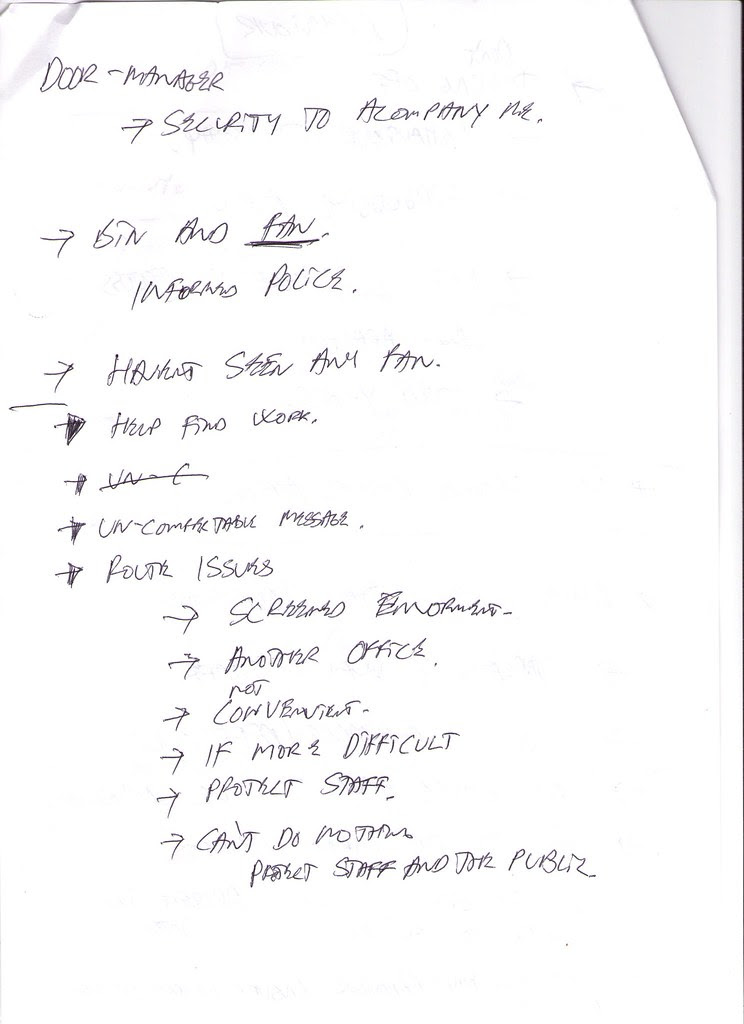 DOOR-MANAGER
→ SECURITY TO ACOMPANY ME.
→ BIN AND FAN.
INFORMED POLICE.
→ HAVENT SEEN ANY FAN.
→ HELP FIND WORK.
→ UN-C
→ UN-COMFERTABLE MESSAGE.
→ ROUTE ISSUES
→ SCREENED
→ ANOTHER OFFICE.
→ NOT CONVENIENT-
→ IF MORE DIFFICULT
→ PROTECT STAFF.
→ CAN'T DO NOTHING
PROTECT STAFF AND THE PUBLIC